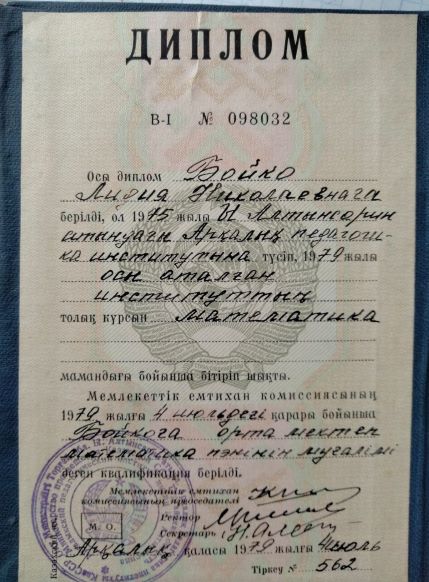 ДИПЛОМ
В-I № 098032
Осы диплом Бойко
Лидия Николаевнаға
берілді, ол 1975 жылы Ы Алтынсарин
атындағы Арқалық педагоги-
ка институтына түсіп, 1979 жылы
осы аталған
институттың
толық курсын математика
мамандығы бойынша бітіріп шықты.
Мемлекеттік емтихан комиссиясының
1979 жылғы 4 июльдегі қарары бойынша
Бойкоға орта мектеп
математика пәнінің мұғалімі
деген квалификация берілді.
Мемлекеттік емтихан
комиссиясының председателі
Ректор
Секретарь
М. О.
Арқалық қаласы 1979 жылғы 4 июль
Тіркеу № 562